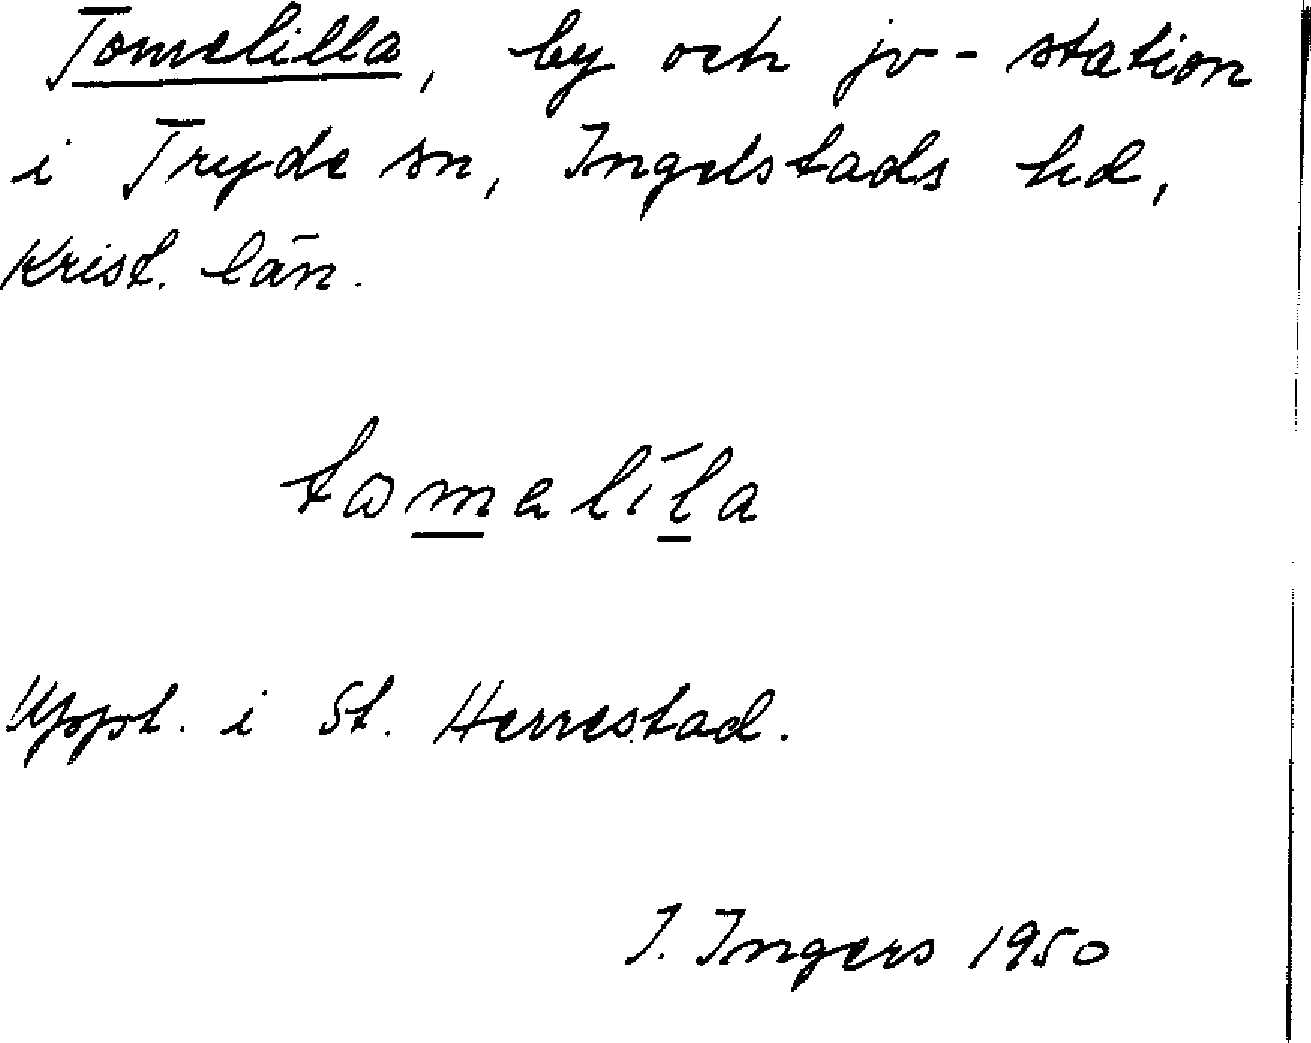 Tomelilla, by och jv-station
i Tryde sn, Ingelstads hd,
Krist. län.
tɷmelíla
Uppt. i St. Herrestad.
I. Ingers 1950